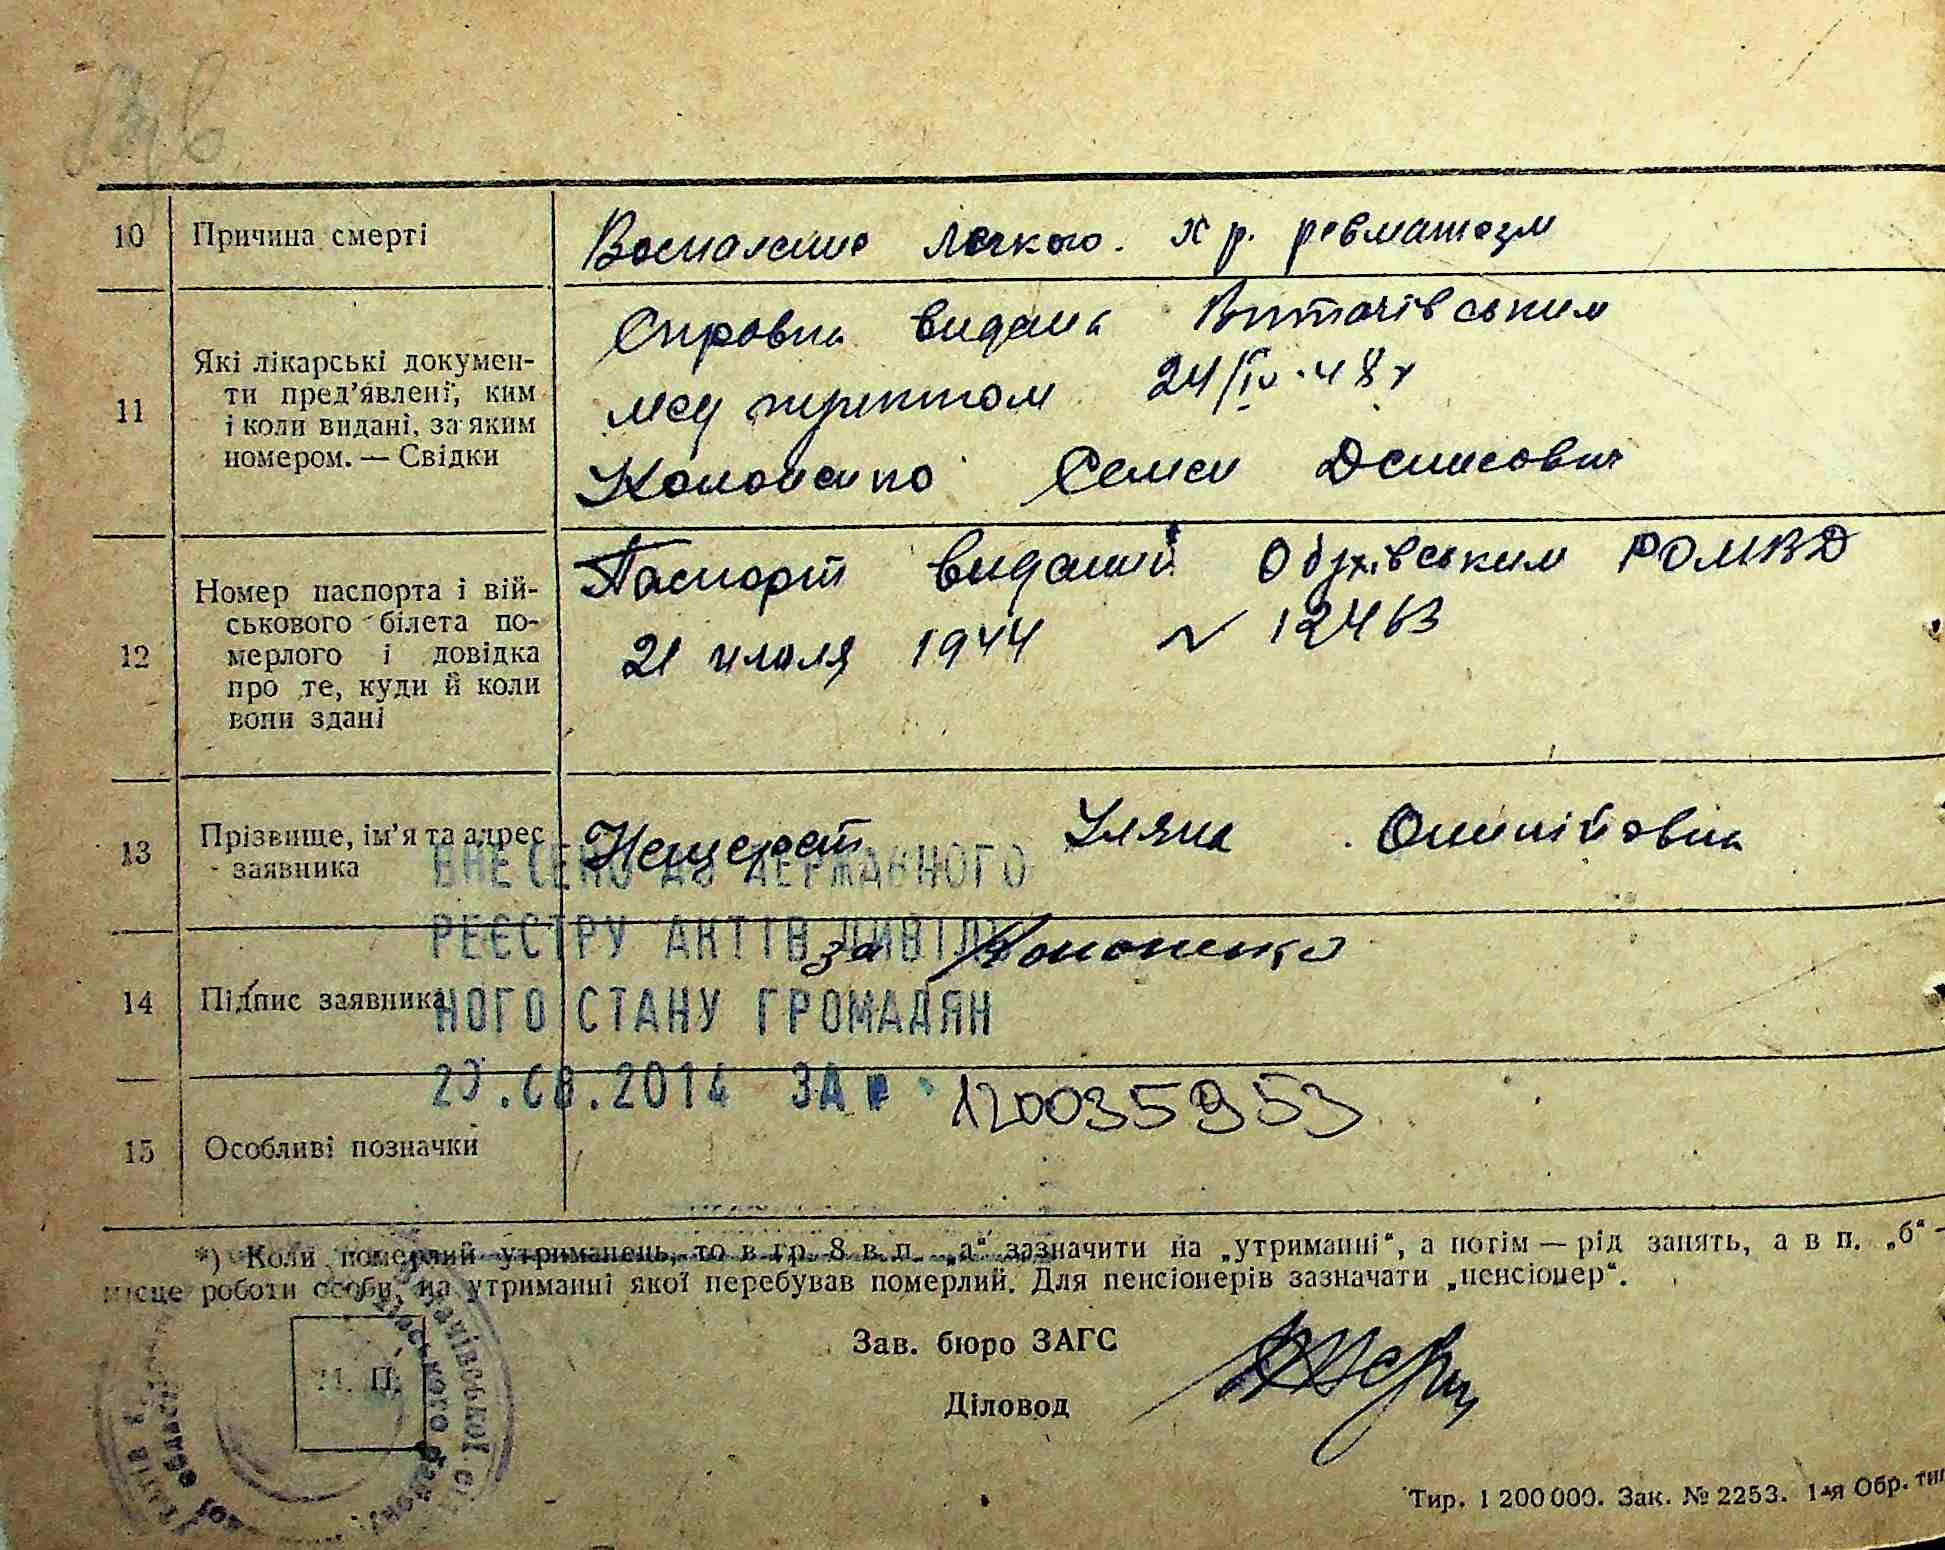 10 Причина смерті Воспаление легкого. хр. ревматизм
11 Які лікарські докумен-
ти пред’явлені, ким
і коли видані, за яким
номером. — Свідки
Справка видана Витачівським
мед пунктом 24/IV-48г
Семен Денисович
12 Номер паспорта і вій-
ськового білета по-
мерлого і довідка
про те, куди й коли
вони здані
Паспорт виданий Обухівським РОМВД
21 июля 1944 N 12463
13 Прізвище, ім’я та адрес
заявника
Нещерет Уляна
14 Підпис заявника за Кононенко
ВНЕСЕНО ДО ДЕРЖАВНОГО
РЕЄСТРУ АКТІВ ЦИВІЛЬ
НОГО СТАНУ ГРОМАДЯН
.2014 ЗА № 1200035953
15 Особливі позначки
*) Коли померлий утриманець, то в гр. 8 в п. „а“ зазначити на „утриманні“, а потім — рід занять, а в п. „б“ -
місце роботи особи, на утриманні якої перебував померлий. Для пенсіонерів зазначати „пенсіонер“.
Зав. бюро ЗАГС
М. П.
Діловод
Тир. 1 200 000. Зак. № 2253. 1-я Обр. тип